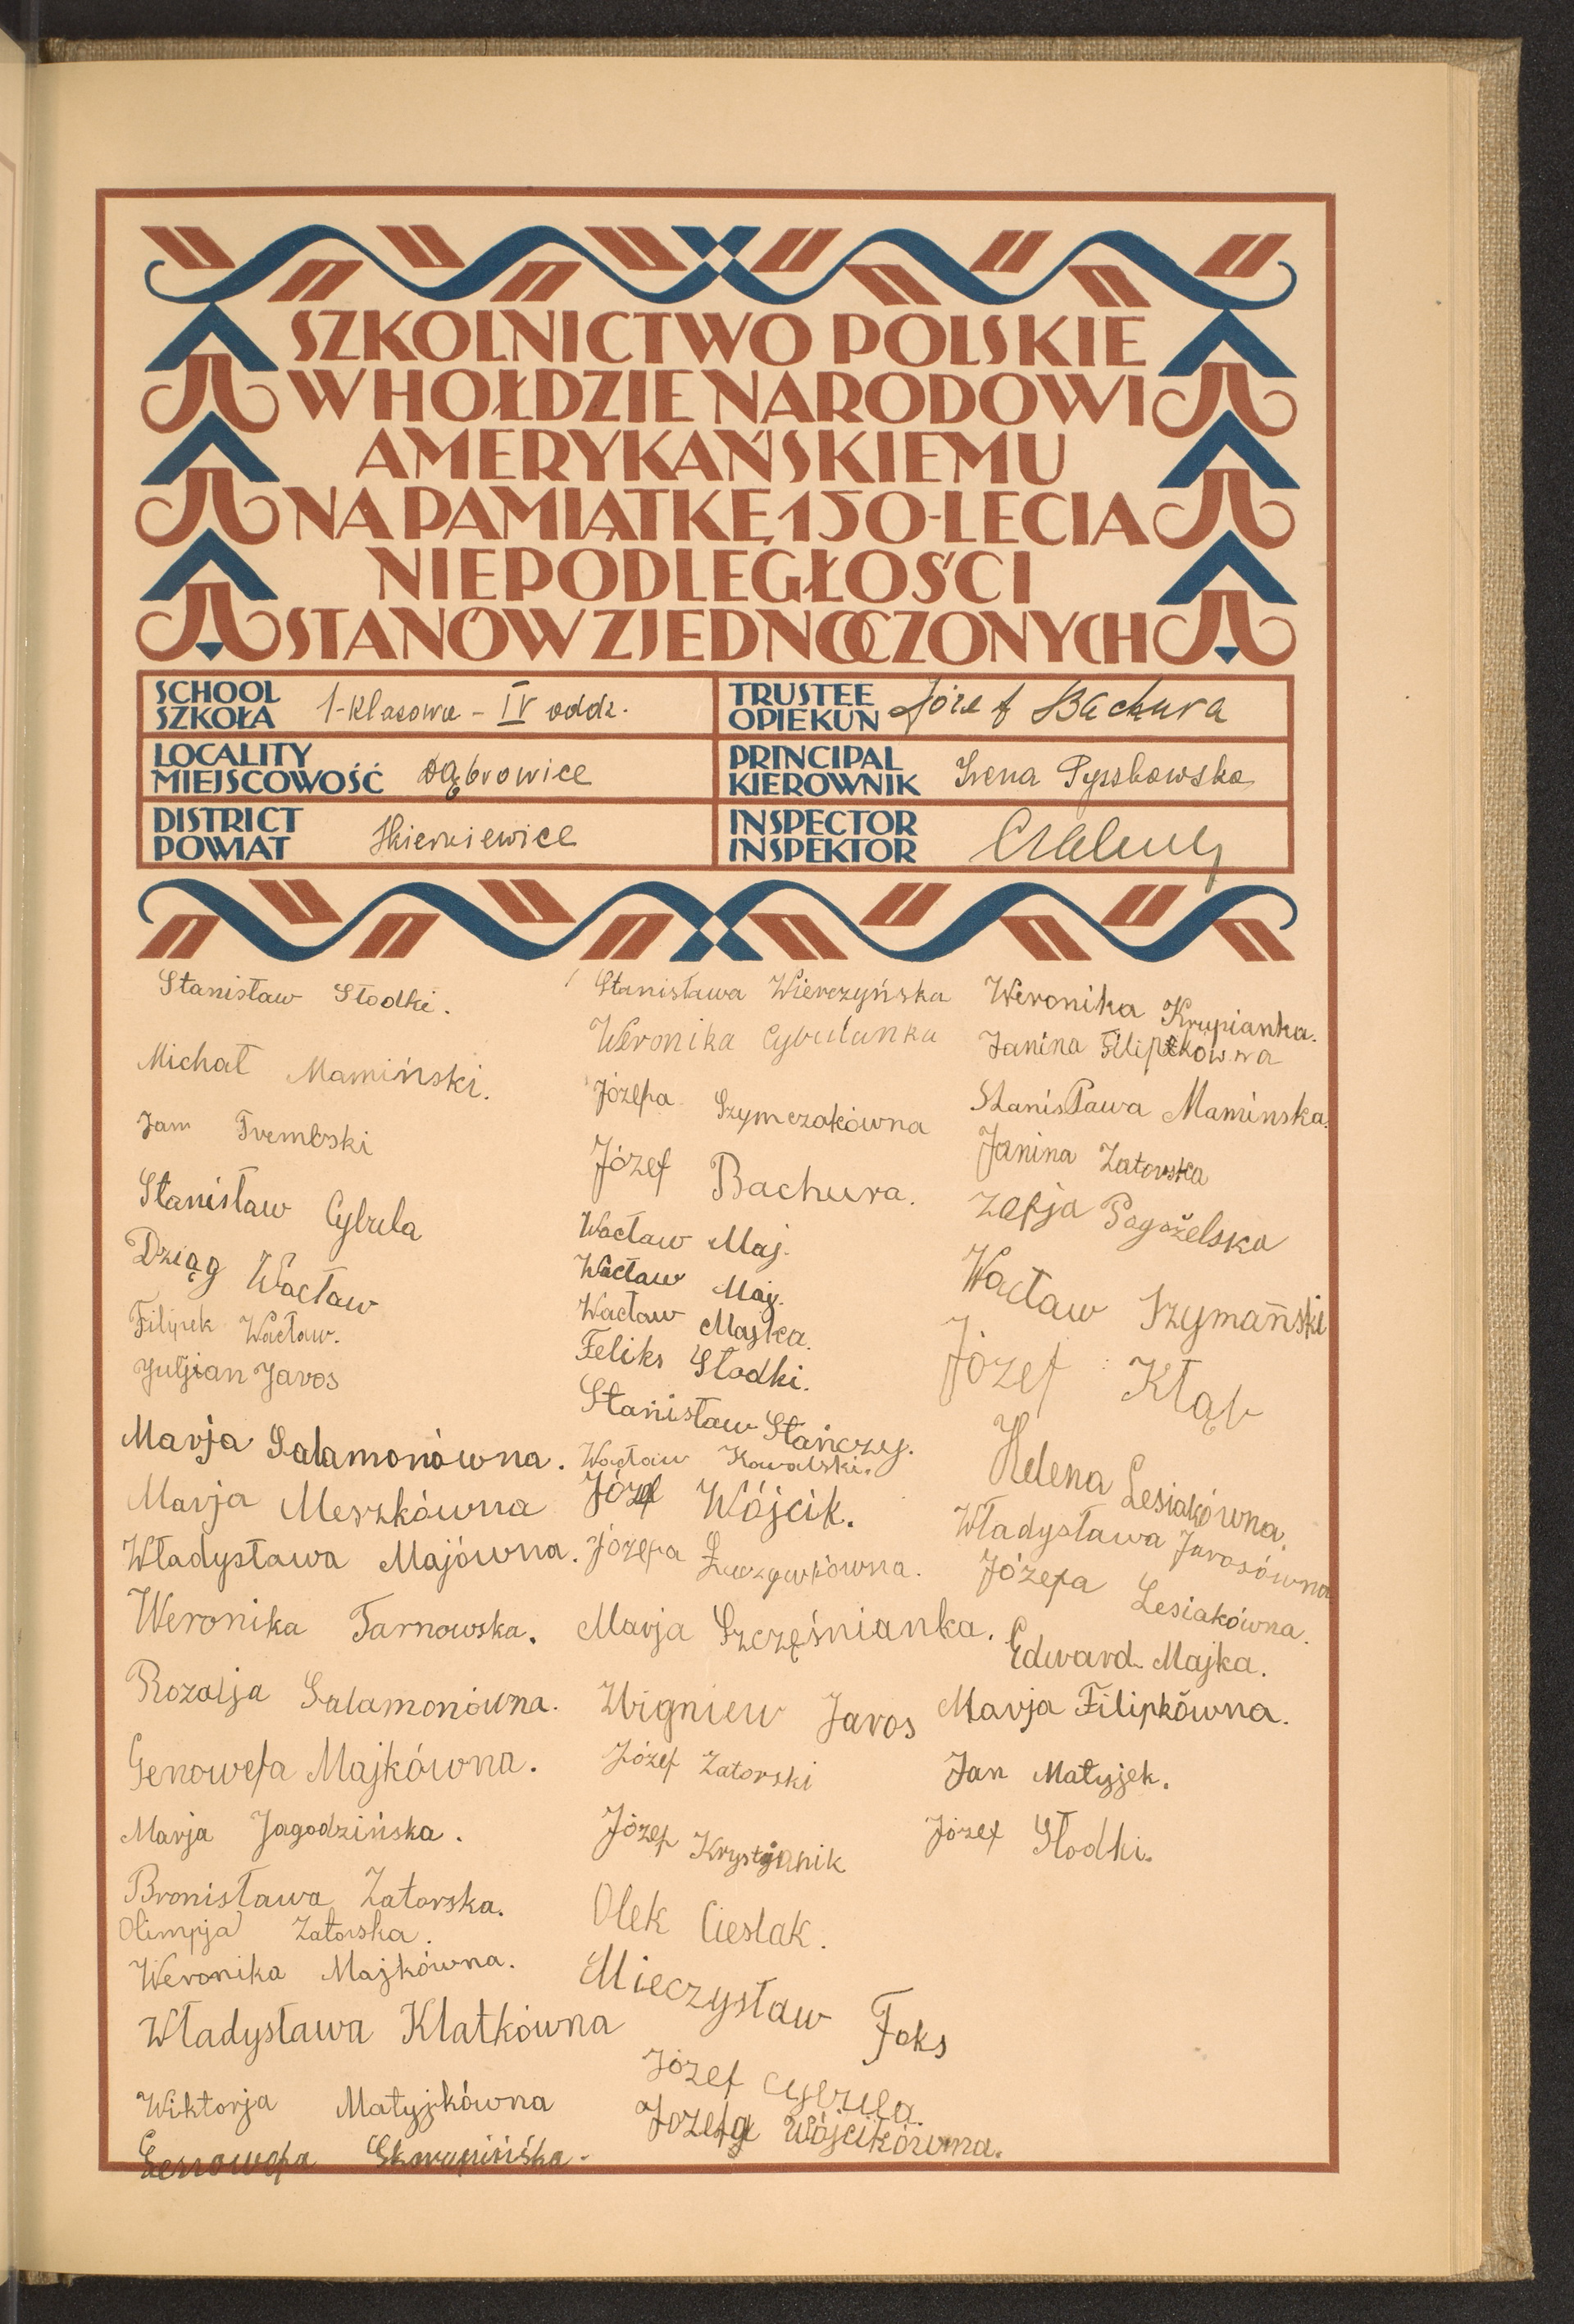 SZKOLNICTWO POLSKIE
W HOŁDZIE NARODOWI
AMERYKAŃSKIEMU
NA PAMIĄTKĘ 150-LECIA
NIEPODLEGŁOŚCI
STANÓW ZJEDNOCZONYCH
SCHOOL
SZKOŁA 1-klasowa - IV oddz.
TRUSTEE
OPIEKUN Józef Bachura
LOCALITY
MIEJSCOWOŚĆ Dąbrowice
PRINCIPAL
KIEROWNIK Irena
DISTRICT
POWIAT Skierniewice
INSPECTOR
INSPEKTOR
Stanisław Słodki.
Michał Mamiński.
Jan
Stanisław Cybula
Dziąg Wacław
Filipek Wacław.
Juljan Jaros
Marja Salamonówna.
Marja Meszkówna
Władysława Majówna.
Weronika Tarnowska.
Rozalja Salamonówna.
Genowefa Majkówna.
Marja Jagodzińska.
Bronisława Zatorska.
Olimpja Zatorska.
Weronika Majkówna.
Władysława Klatkówna
Wiktorja Matyjkówna
Genowefa
Stanisława Wierzyńska
Weronika Cybulanka
Józefa Szymczakówna
Józef Bachura.
Wacław Maj.
Wacław Maj.
Wacław Majka.
Feliks Słodki.
Stanisław Stańczy.
Wacław Kowalski.
Józef Wójcik.
Józefa
Marja Szcześnianka.
Zbigniew Jaros
Józef Zatorski
Józef Krystjanik
Olek Cieslak.
Mieczysław Foks
Józef Cybula.
Józefa Wójcikówna.
Weronika Krupianka.
Janina Filipkówna
Stanisława Maminska.
Janina Zatorska
Zofja Pogożelska
Wacław Szymański
Józef Kłąb
Helena Lesiakówna.
Władysława Jarosówna
Józefa Lesiakówna.
Edward Majka.
Marja Filipkówna.
Jan Matyjek.
Józef Słodki.